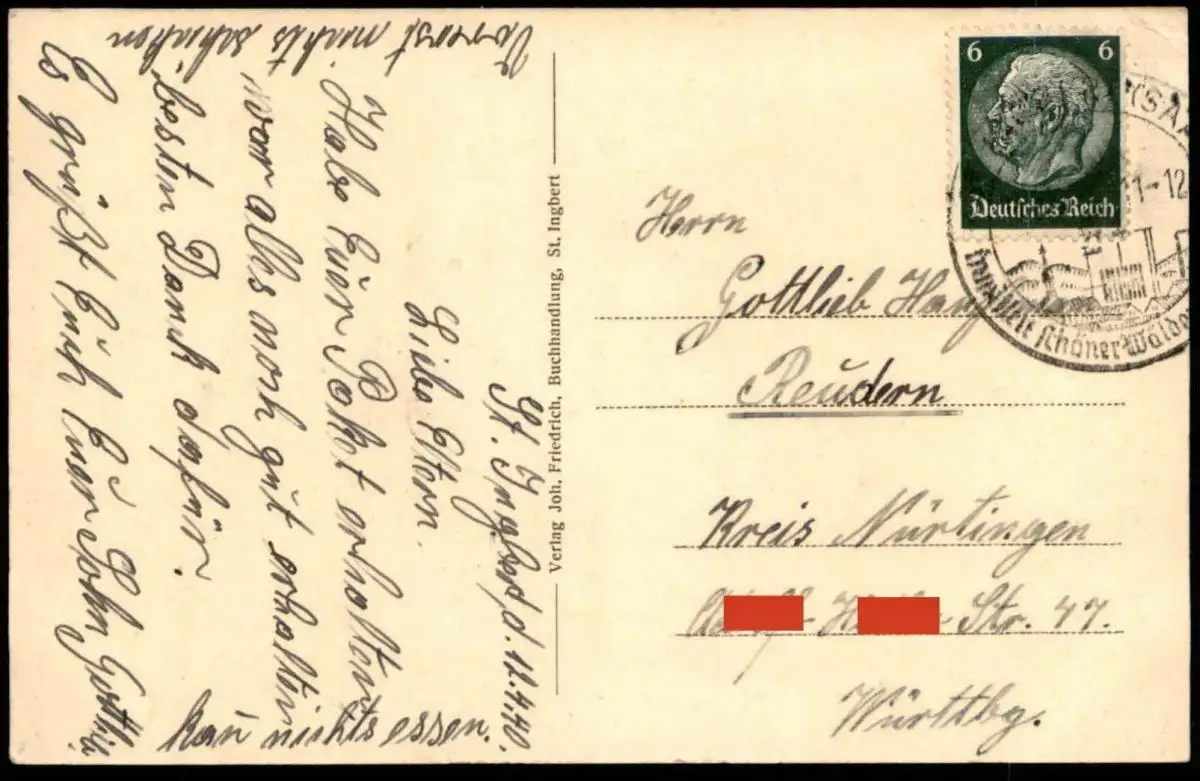 St. Ingbert, d. 12.4.40.
Liebe Eltern.
Habe Euer Paket erhalten
war alles noch gut erhalten
besten Dank dafür.
Es grüßt Euch Euer Sohn Gottlieb
Vorerst nichts schicken
kan nichts essen.
Verlag Joh. Friedrich, Buchhandlung, St. Ingbert
6 6
Deutsches Reich
(SAA
11-12
schöner Wälder
Herrn
Gottlieb
Reudern
Kreis Nürtingen
Str. 47.
Württbg.